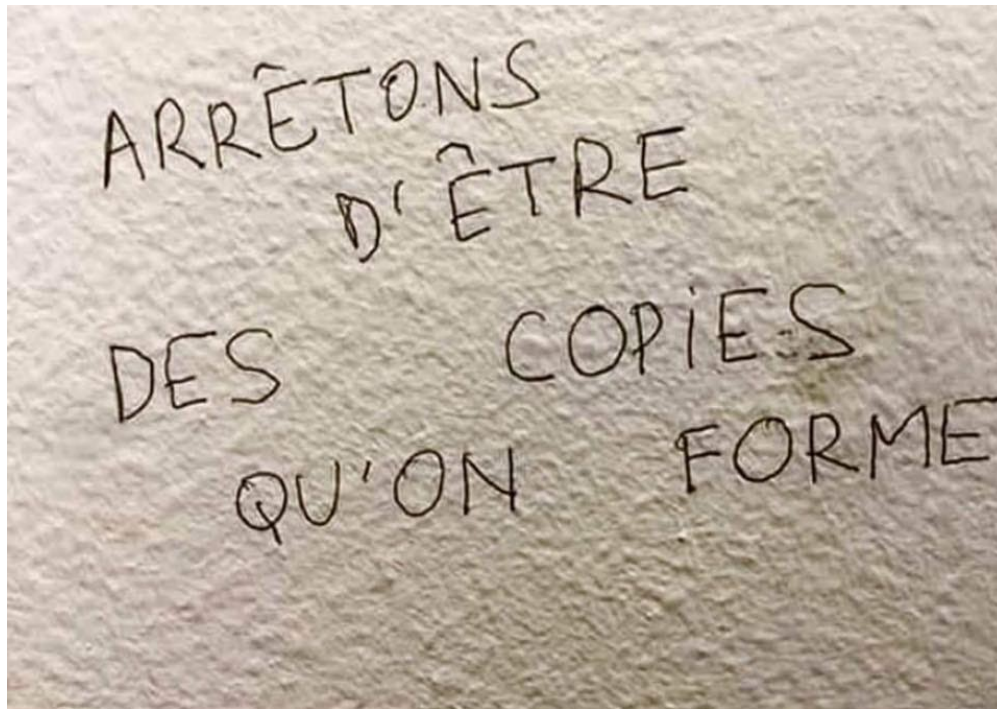 ARRÊTONS
D'ÊTRE
DES COPiES
QU'ON FORME